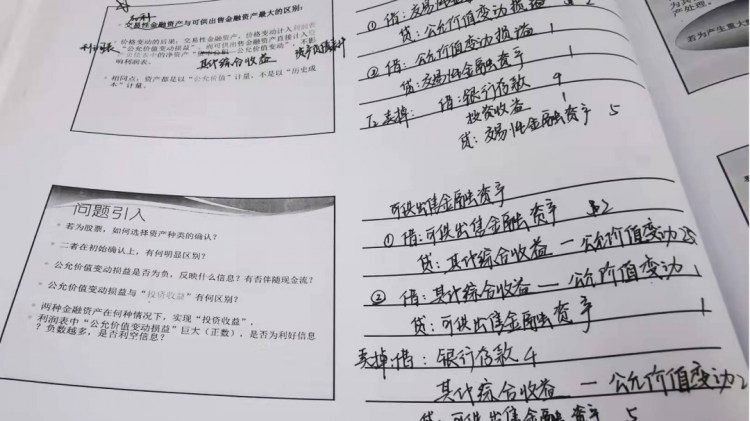 交易性金融资产与可供出售金融资产最大的区别:
价格变动的后果,交易性金融资产,价格变动计入利润表
“公允价值变动损益”,而可供出售金融资产直接计入资
其他综合收益
响利润表。
相同点:资产都是以“公允价值”计量,不是以“历史成
本”计量。
问题引入
若为股票,如何选择资产种类的确认?
二者在初始确认上,有何明显区别?
公允价值变动损益是否为负,反映什么信息?有否伴随现金流?
公允价值变动损益与“投资收益”有何区别?
两种金融资产在何种情况下,实现“投资收益”,
利润表中“公允价值变动损益”巨大(正数),是否为利好信息
?负数越多,是否利空信息?
① 借:交易性金融资产 2
贷:公允价值变动损益 2
② 借:公允价值变动损益 1
贷:交易性金融资产 1
卖掉:借:银行存款 9
投资收益 1
贷:交易性金融资产 5
可供出售金融资产
① 借:可供出售金融资产 2
贷:其他综合收益 — 公允价值变动 2
② 借:其他综合收益 — 公允价值变动 1
贷:可供出售金融资产 1
卖掉:借:银行存款 4
其他综合收益 — 公允价值变动 2
贷:可供出售金融资产 5
产处理。
若为产生重大